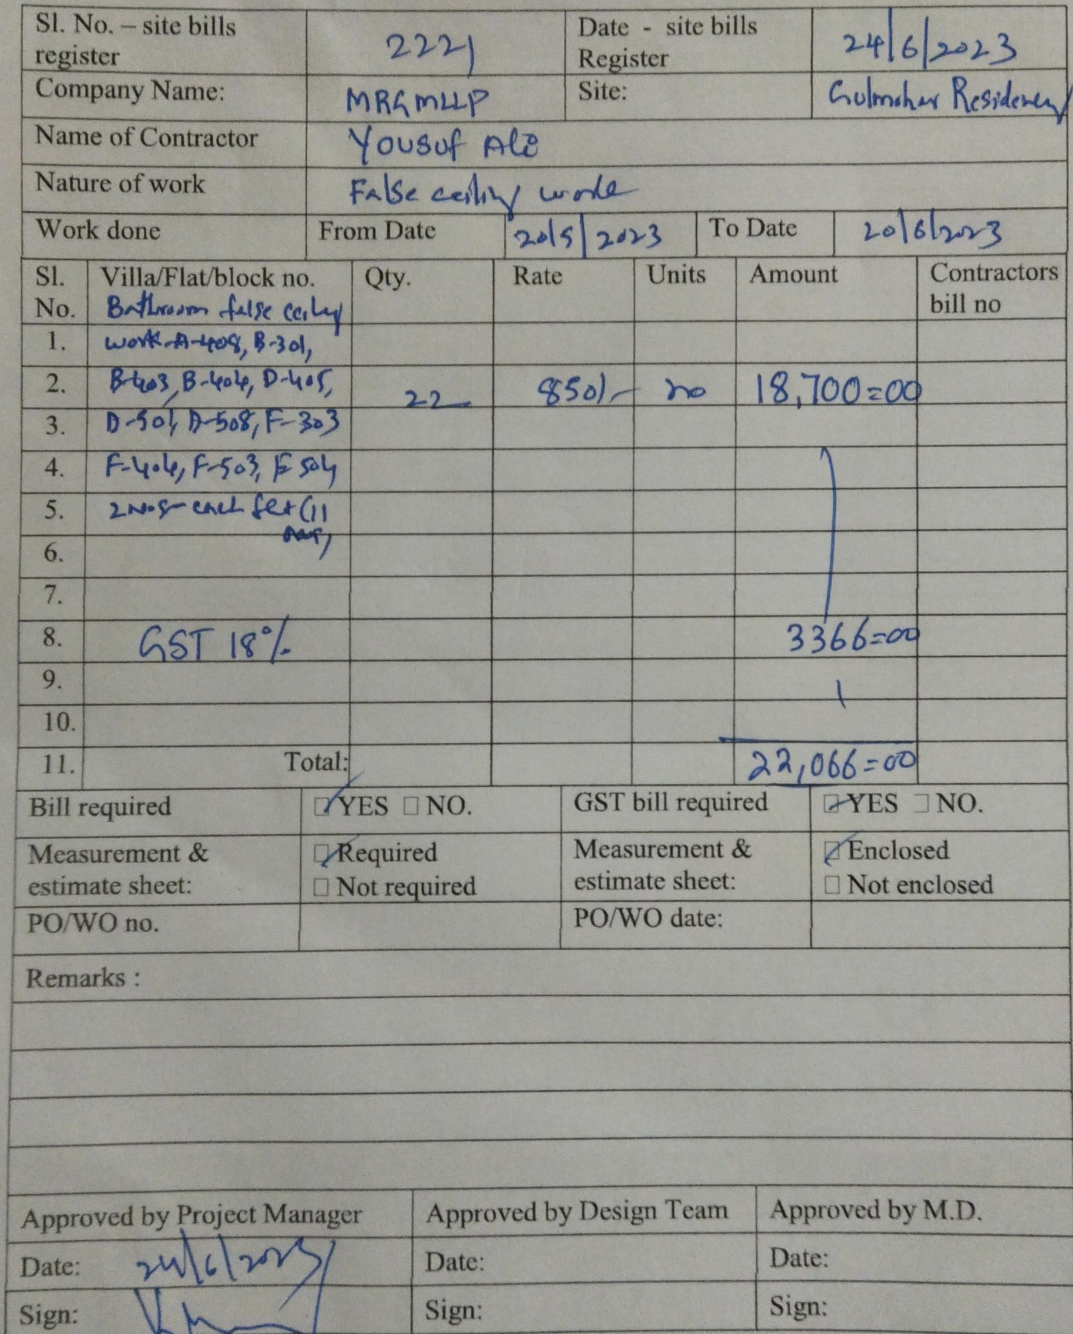 Sl. No. – site bills register 2221 Date - site bills Register 24/6/2023
Company Name: MRGMLLP Site: Gulmohar Residency
Name of Contractor Yousuf Ali
Nature of work False ceiling work
Work done From Date 20/5/2023 To Date 20/6/2023
Sl. No. Villa/Flat/block no. Qty. Rate Units Amount Contractors bill no
Bathroom false ceiling
1. work-A-408, B-301,
2. B-403, B-404, D-405, 22 850/- no 18,700=00
3. D-501, D-508, F-303
4. F-404, F-503, F 504
5. 2 Nos- each flat (11
6.
7.
8. GST 18% 3366=00
9.
10.
11. Total: 22,066=00
Bill required YES NO. GST bill required YES NO.
Measurement & estimate sheet: Required Measurement & estimate sheet: Enclosed
Not required Not enclosed
PO/WO no. PO/WO date:
Remarks :
Approved by Project Manager Approved by Design Team Approved by M.D.
Date: 24/6/2023 Date: Date:
Sign: Sign: Sign: